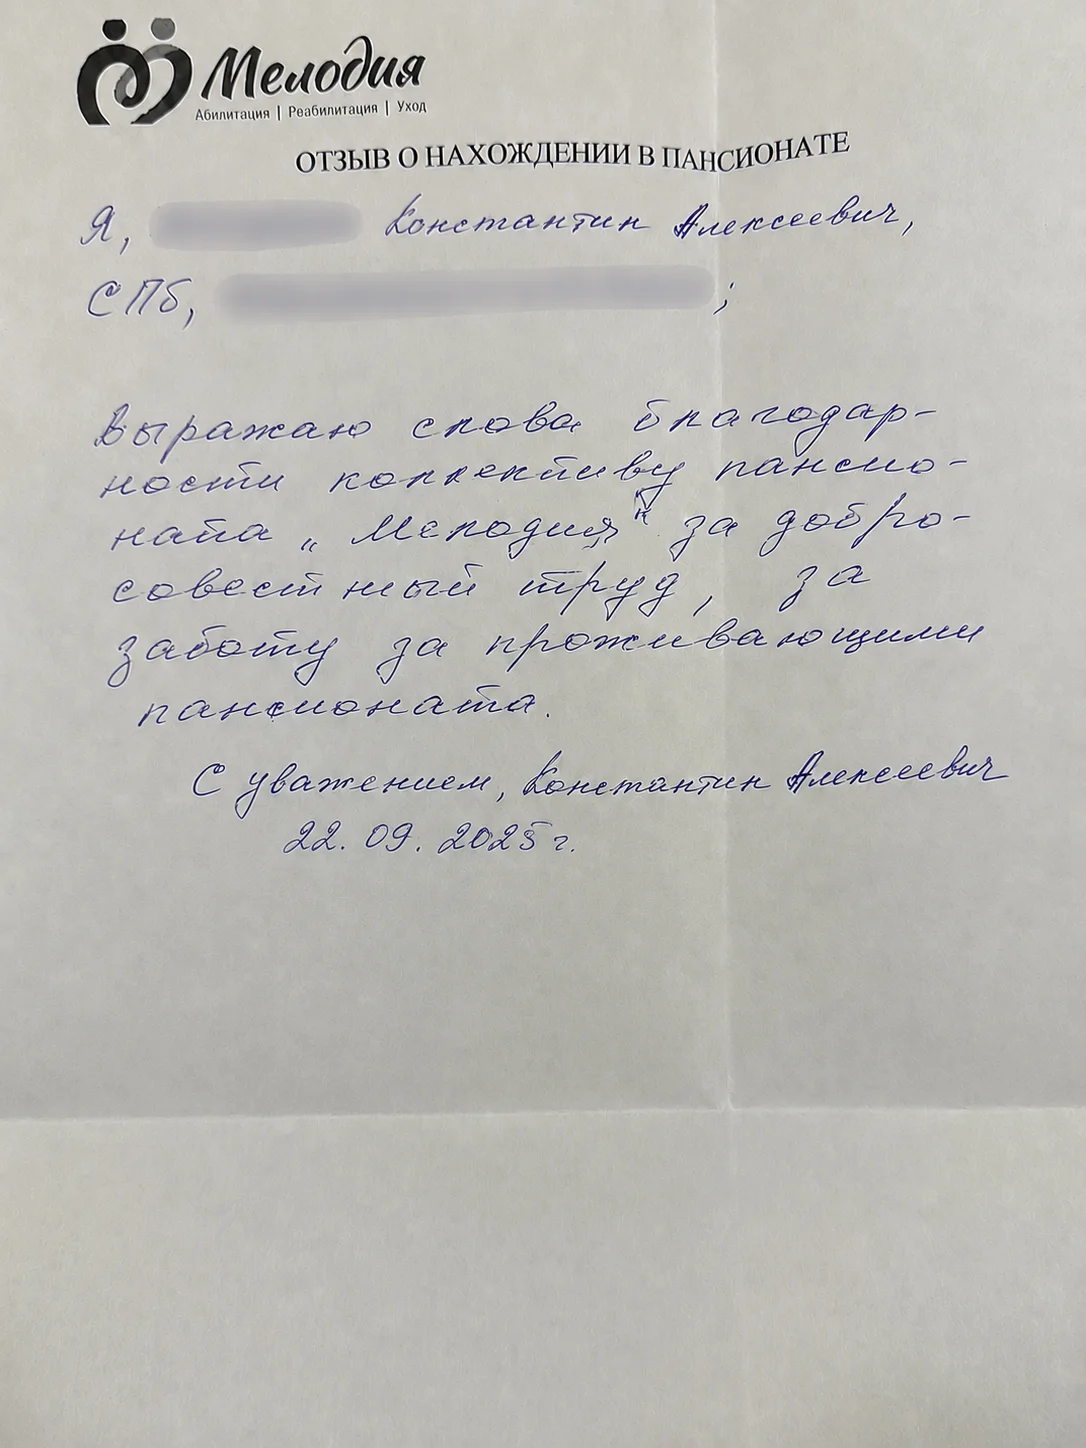 Мелодия
Абилитация | Реабилитация | Уход
ОТЗЫВ О НАХОЖДЕНИИ В ПАНСИОНАТЕ
Я, Константин Алексеевич,
СПб, ;
Выражаю слова благодар-
ности коллективу пансио-
ната „Мелодия“ за добро-
совестный труд, за
заботу за проживающими
пансионата.
С уважением, Константин Алексеевич
22.09.2025 г.